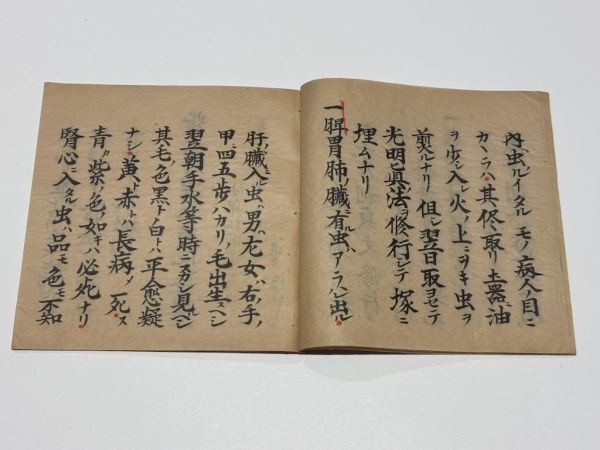 内虫ルイタル モノ病人ノ目ニ
カヽラハ其侭取リ土器ニ油
ヲ少シ入レ火ノ上ニヲキ虫ヲ
煎ルナリ 但シ翌日取ヨセテ
光明真法ヲ修行シテ塚ニ
埋ムナリ
一脾胃肺ノ臓ニ有ル虫ハアラハレ出ル
肝ノ臓ニ入ル虫ハ男ハ左女ハ右ノ手ノ
甲ニ四五歩ハカリノ毛出生スヘシ
翌朝手水等ノ時ニスカシ見ルヘシ
其毛ノ色黒トノ白トハ平愈疑
ナシ黄ト赤トハ長病ノ 死ス
青ノ紫ノ色ノ如キハ必死ナリ
腎心ニ入タル虫ハ品モ色モ不知